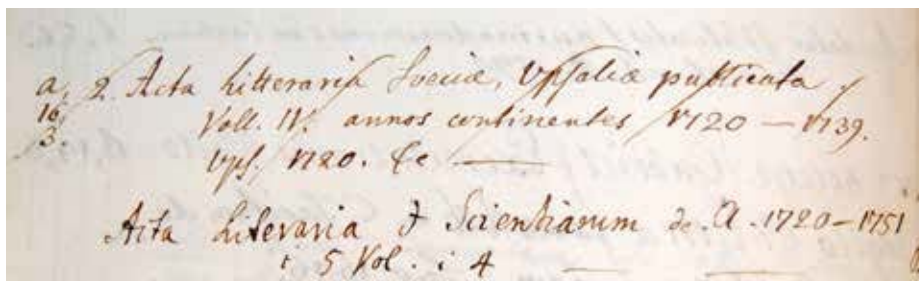 a. 2. Acta Litteraria Sveciæ, Upsaliæ publicata
16. Voll. IV. annos continentes 1720 — 1739.
3. Ups. 1720. &c —
Acta Literaria & Scientiarum de A. 1720–1751
i 5 Vol. i 4